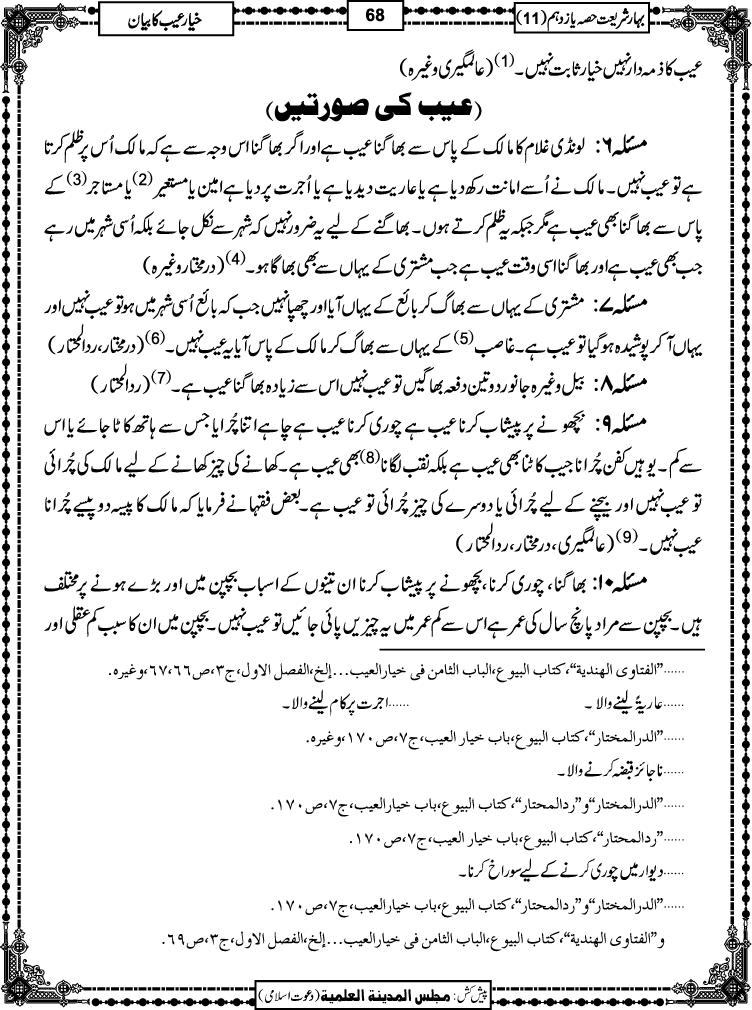 بہار شریعت حصہ یازدہم (11)
68
خیار عیب کا بیان
عیب کا ذمہ دار نہیں خیار ثابت نہیں۔(1) (عالمگیری وغیرہ)
(عیب کی صورتیں)
مسئلہ ۶: لونڈی غلام کا مالک کے پاس سے بھاگنا عیب ہے اور اگر بھاگنا اس وجہ سے ہے کہ مالک اُس پر ظلم کرتا
ہے تو عیب نہیں۔ مالک نے اُسے امانت رکھ دیا ہے یا عاریت دیدیا ہے یا اُجرت پر دیا ہے امین یا مستعیر(2) یا مستاجر(3) کے
پاس سے بھاگنا بھی عیب ہے مگر جبکہ یہ ظلم کرتے ہوں۔ بھاگنے کے لیے یہ ضرور نہیں کہ شہر سے نکل جائے بلکہ اُسی شہر میں رہے
جب بھی عیب ہے اور بھاگنا اسی وقت عیب ہے جب مشتری کے یہاں سے بھی بھاگا ہو۔(4) (درمختار وغیرہ)
مسئلہ ۷: مشتری کے یہاں سے بھاگ کر بائع کے یہاں آیا اور چھپا نہیں جب کہ بائع اُسی شہر میں ہو تو عیب نہیں اور
یہاں آکر پوشیدہ ہوگیا تو عیب ہے۔ غاصب(5) کے یہاں سے بھاگ کر مالک کے پاس آیا یہ عیب نہیں۔(6) (درمختار، ردالمحتار)
مسئلہ ۸: بیل وغیرہ جانور دو تین دفعہ بھاگیں تو عیب نہیں اس سے زیادہ بھاگنا عیب ہے۔(7) (ردالمحتار)
مسئلہ ۹: بچھونے پر پیشاب کرنا عیب ہے چوری کرنا عیب ہے چاہے اتنا چُرایا جس سے ہاتھ کاٹا جائے یا اس
سے کم۔ یوہیں کفن چُرانا جیب کاٹنا بھی عیب ہے بلکہ نقب لگانا(8) بھی عیب ہے۔ کھانے کی چیز کھانے کے لیے مالک کی چُرائی
تو عیب نہیں اور بیچنے کے لیے چُرائی یا دوسرے کی چیز چُرائی تو عیب ہے۔ بعض فقہا نے فرمایا کہ مالک کا پیسہ دو پیسے چُرانا
عیب نہیں۔(9) (عالمگیری، درمختار، ردالمحتار)
مسئلہ ۱۰: بھاگنا، چوری کرنا، بچھونے پر پیشاب کرنا ان تینوں کے اسباب بچپن میں اور بڑے ہونے پر مختلف
ہیں۔ بچپن سے مراد پانچ سال کی عمر ہے اس سے کم عمر میں یہ چیزیں پائی جائیں تو عیب نہیں۔ بچپن میں ان کا سبب کم عقلی اور
......"الفتاوى الهندية"، كتاب البيوع، الباب الثامن فى خيارالعيب...إلخ، الفصل الاول، ج۳، ص۶۶، ۶۷، وغيره.
......عاریۃً لینے والا۔ ......اجرت پر کام لینے والا۔
......"الدرالمختار"، كتاب البيوع، باب خيار العيب، ج۷، ص۱۷۰، وغيره.
......ناجائز قبضہ کرنے والا۔
......"الدرالمختار" و"ردالمحتار"، كتاب البيوع، باب خيارالعيب، ج۷، ص۱۷۰.
......"ردالمحتار"، كتاب البيوع، باب خيار العيب، ج۷، ص۱۷۰.
......دیوار میں چوری کرنے کے لیے سوراخ کرنا۔
......"الدرالمختار" و"ردالمحتار"، كتاب البيوع، باب خيارالعيب، ج۷، ص۱۷۰.
و"الفتاوى الهندية"، كتاب البيوع، الباب الثامن فى خيارالعيب...إلخ، الفصل الاول، ج۳، ص۶۹.
پیش کش: مجلس المدینۃ العلمیۃ (دعوت اسلامی)